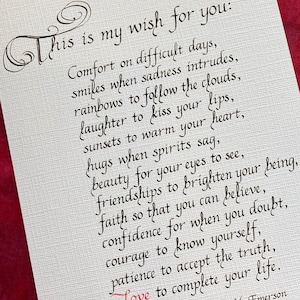 This is my wish for you:
Comfort on difficult days,
smiles when sadness intrudes,
rainbows to follow the clouds,
laughter to kiss your lips,
sunsets to warm your heart,
hugs when spirits sag,
beauty for your eyes to see,
friendships to brighten your being,
faith so that you can believe,
confidence for when you doubt,
courage to know yourself,
patience to accept the truth,
Love to complete your life.
Emerson